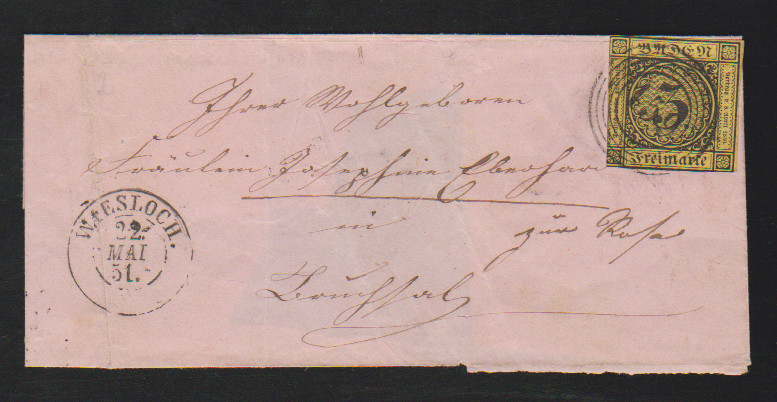 BADEN
3
Freimarke
Ihrer Wohlgeboren
Fräulein Josephine Eberhar
in zur Rose
Bruchsal
WIESLOCH.
22.
MAI
51.